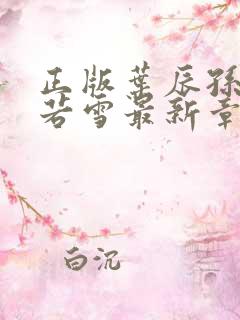 正版葉辰孫
若雪最新章
白沉